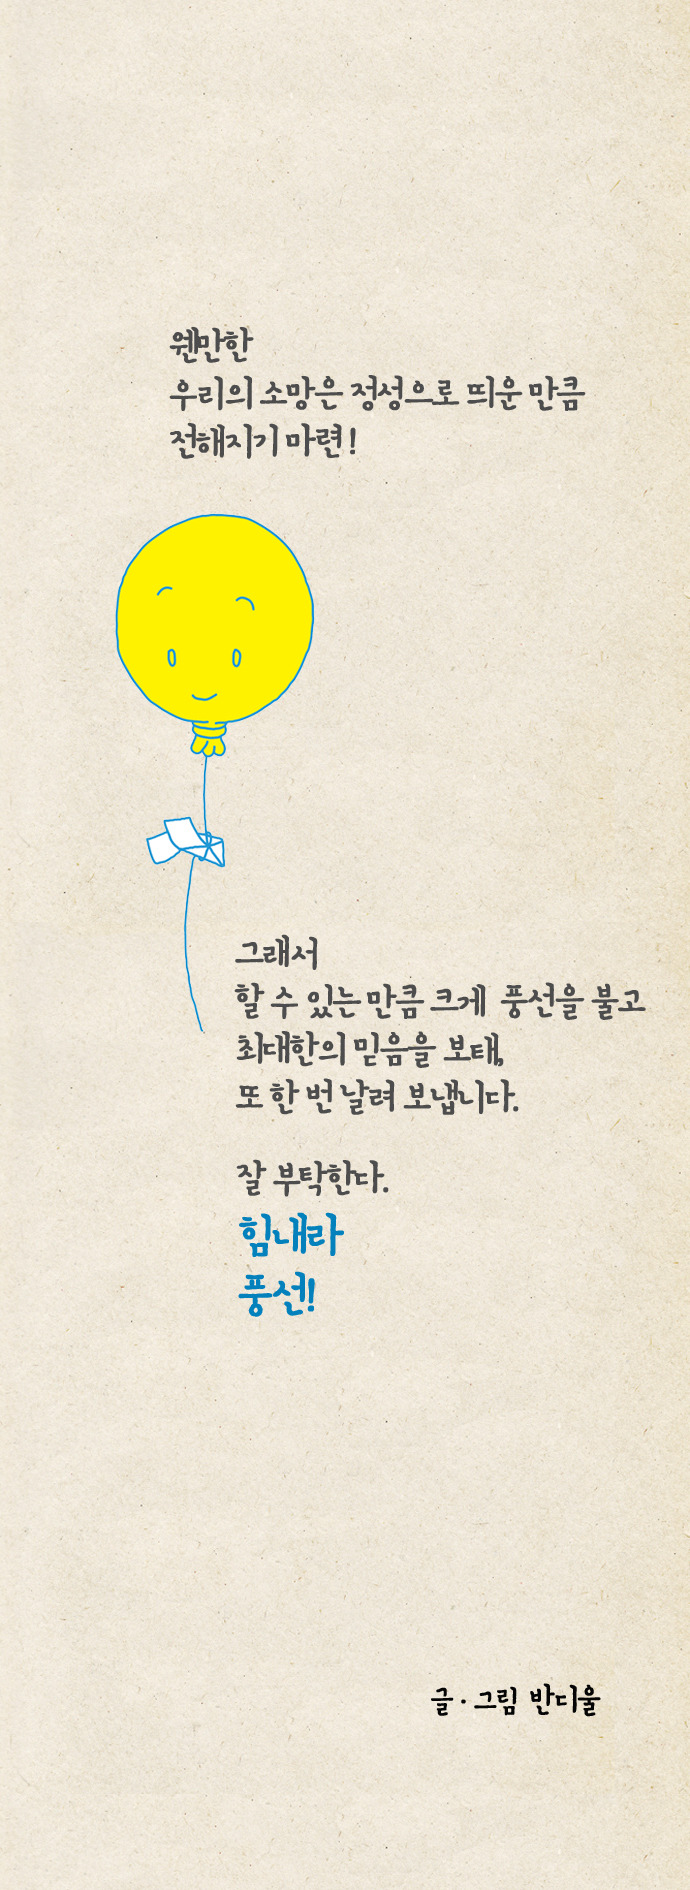 웬만한
우리의 소망은 정성으로 띄운 만큼
전해지기 마련!
그래서
할 수 있는 만큼 크게 풍선을 불고
최대한의 믿음을 보태,
또 한 번 날려 보냅니다.
잘 부탁한다.
힘내라
풍선!
글·그림 반디울